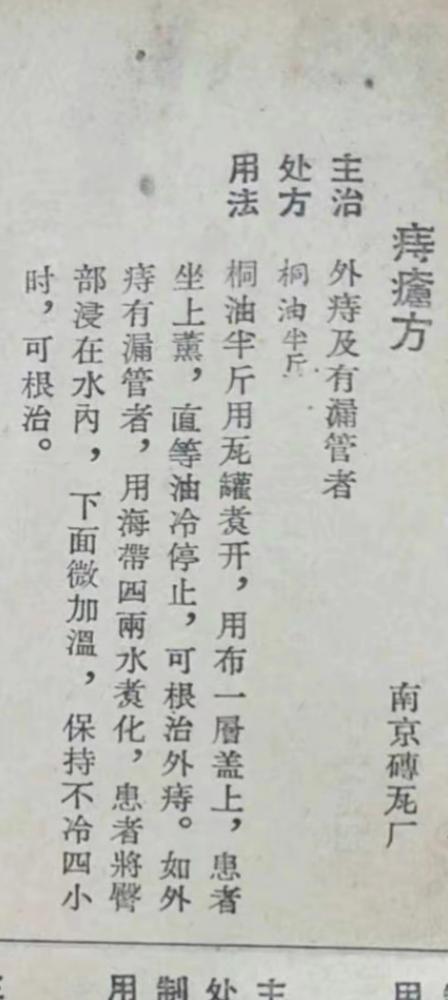 痔瘡方 南京磚瓦厂
主治 外痔及有漏管者
处方 桐油半斤
用法 桐油半斤用瓦罐煑开，用布一層盖上，患者
坐上薰，直等油冷停止，可根治外痔。如外
痔有漏管者，用海帶四兩水煑化，患者將臀
部浸在水內，下面微加溫，保持不冷四小
时，可根治。
主
处
制
用